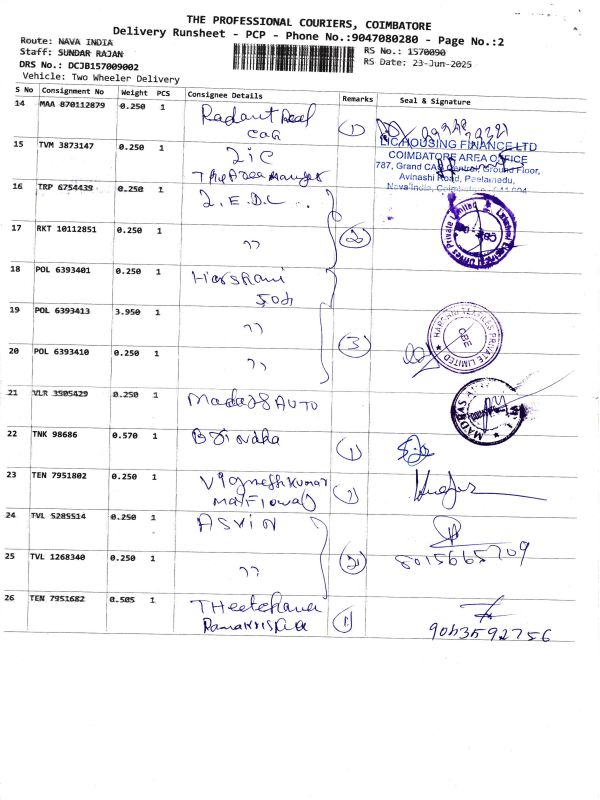 THE PROFESSIONAL COURIERS, COIMBATORE
Delivery Runsheet - PCP - Phone No.:9047080280 - Page No.:2
Route: NAVA INDIA
RS No.: 1570090
Staff: SUNDAR RAJAN
RS Date: 23-Jun-2025
DRS No.: DCJB157009002
Vehicle: Two Wheeler Delivery
S No Consignment No Weight PCS Consignee Details Remarks Seal & Signature
14 MAA 870112879 0.250 1
1
LIC HOUSING FINANCE LTD
COIMBATORE AREA OFFICE
787, Grand CAG Central, Ground Floor,
Avinashi Road, Peelamedu,
15 TVM 3873147 0.250 1 LIC
The Area Manager
16 TRP 6754439 0.250 1 L.E.D.C ..
17 RKT 10112851 0.250 1 " 2
18 POL 6393401 0.250 1
19 POL 6393413 3.950 1 "
20 POL 6393410 0.250 1 " 3
PRIVATE LIMITED
CBE
21 VLR 3505429 0.250 1 Madras AUTO
MADRAS
22 TNK 98686 0.570 1 Brindha 1
23 TEN 7951802 0.250 1 Vignesh Kumar
24 TVL 5285514 0.250 1 ASVIN
25 TVL 1268340 0.250 1 " 2
8015665709
26 TEN 7951682 0.505 1
1
9043592756